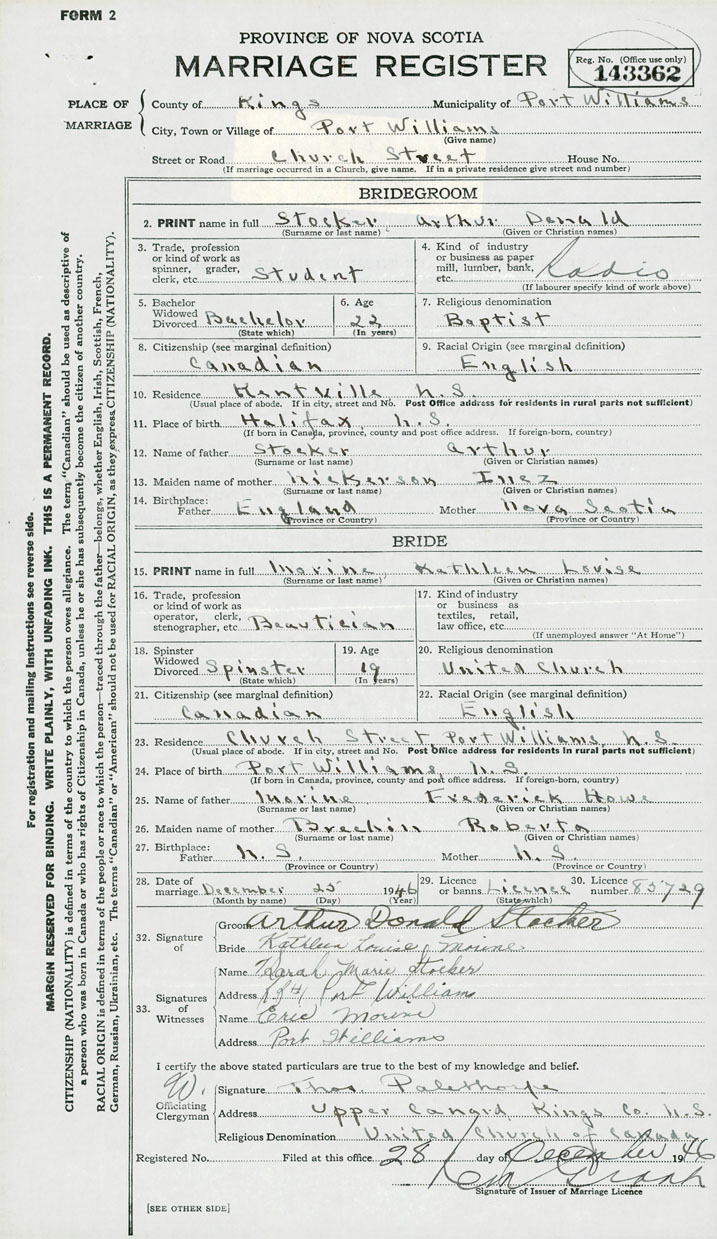 FORM 2
PROVINCE OF NOVA SCOTIA
MARRIAGE REGISTER
Reg. No. (Office use only)
143362
PLACE OF MARRIAGE
County of Kings Municipality of Port Williams
City, Town or Village of Port Williams
(Give name)
Street or Road Church Street House No.
(If marriage occurred in a Church, give name. If in a private residence give street and number)
BRIDEGROOM
2. PRINT name in full Stocker Arthur Donald
(Surname or last name) (Given or Christian names)
3. Trade, profession or kind of work as spinner, grader, clerk, etc. Student
4. Kind of industry or business as paper mill, lumber, bank, etc. Radio
(If labourer specify kind of work above)
5. Bachelor Widowed Divorced Bachelor
(State which)
6. Age 22
(In years)
7. Religious denomination
Baptist
8. Citizenship (see marginal definition)
Canadian
9. Racial Origin (see marginal definition)
English
10. Residence Kentville N.S.
(Usual place of abode. If in city, street and No. Post Office address for residents in rural parts not sufficient)
11. Place of birth Halifax N.S.
(If born in Canada, province, county and post office address. If foreign-born, country)
12. Name of father Stocker Arthur
(Surname or last name) (Given or Christian names)
13. Maiden name of mother Nickerson Inez
(Surname or last name) (Given or Christian names)
14. Birthplace: Father England Mother Nova Scotia
(Province or Country) (Province or Country)
BRIDE
15. PRINT name in full Morine Kathleen Louise
(Surname or last name) (Given or Christian names)
16. Trade, profession or kind of work as operator, clerk, stenographer, etc Beautician
17. Kind of industry or business as textiles, retail, law office, etc.
(If unemployed answer "At Home")
18. Spinster Widowed Divorced Spinster
(State which)
19. Age 19
(In years)
20. Religious denomination
United Church
21. Citizenship (see marginal definition)
Canadian
22. Racial Origin (see marginal definition)
English
23. Residence Church Street Port Williams N.S.
(Usual place of abode. If in city, street and No. Post Office address for residents in rural parts not sufficient)
24. Place of birth Port Williams N.S.
(If born in Canada, province, county and post office address. If foreign-born, country)
25. Name of father Morine Frederick Howe
(Surname or last name) (Given or Christian names)
26. Maiden name of mother Brechin Roberta
(Surname or last name) (Given or Christian names)
27. Birthplace: Father N.S. Mother N.S.
(Province or Country) (Province or Country)
28. Date of marriage December 25 1946
(Month by name) (Day) (Year)
29. Licence or banns Licence
(State which)
30. Licence number 85729
32. Signature of
Groom Arthur Donald Stocker
Bride Kathleen Louise Morine
33. Signatures of Witnesses
Name Marie Stocker
Address Port Williams
Name Eric Morine
Address Port Williams
I certify the above stated particulars are true to the best of my knowledge and belief.
Officiating Clergyman
Signature Thos. Palethorpe
Address Upper Canard Kings Co. N.S.
Religious Denomination United Church of Canada
Registered No. Filed at this office 28 day of December 1946
Signature of Issuer of Marriage Licence
[SEE OTHER SIDE]
For registration and mailing instructions see reverse side.
MARGIN RESERVED FOR BINDING. WRITE PLAINLY, WITH UNFADING INK. THIS IS A PERMANENT RECORD.
CITIZENSHIP (NATIONALITY) is defined in terms of the country to which the person owes allegiance. The term "Canadian" should be used as descriptive of
a person who was born in Canada or who has rights of Citizenship in Canada, unless he or she has subsequently become the citizen of another country.
RACIAL ORIGIN is defined in terms of the people or race to which the person—traced through the father—belongs, whether English, Irish, Scottish, French,
German, Russian, Ukrainian, etc. The terms "Canadian" or "American" should not be used for RACIAL ORIGIN, as they express CITIZENSHIP (NATIONALITY).